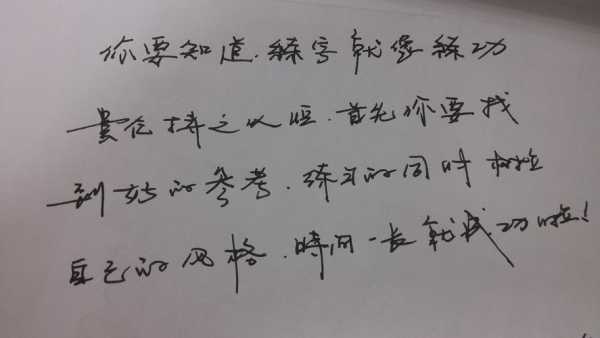 你要知道.練字就像練功
贵在持之以恒.首先你要找
到好的参考.练习的同时树立
自己的风格.時间一长就成功啦!